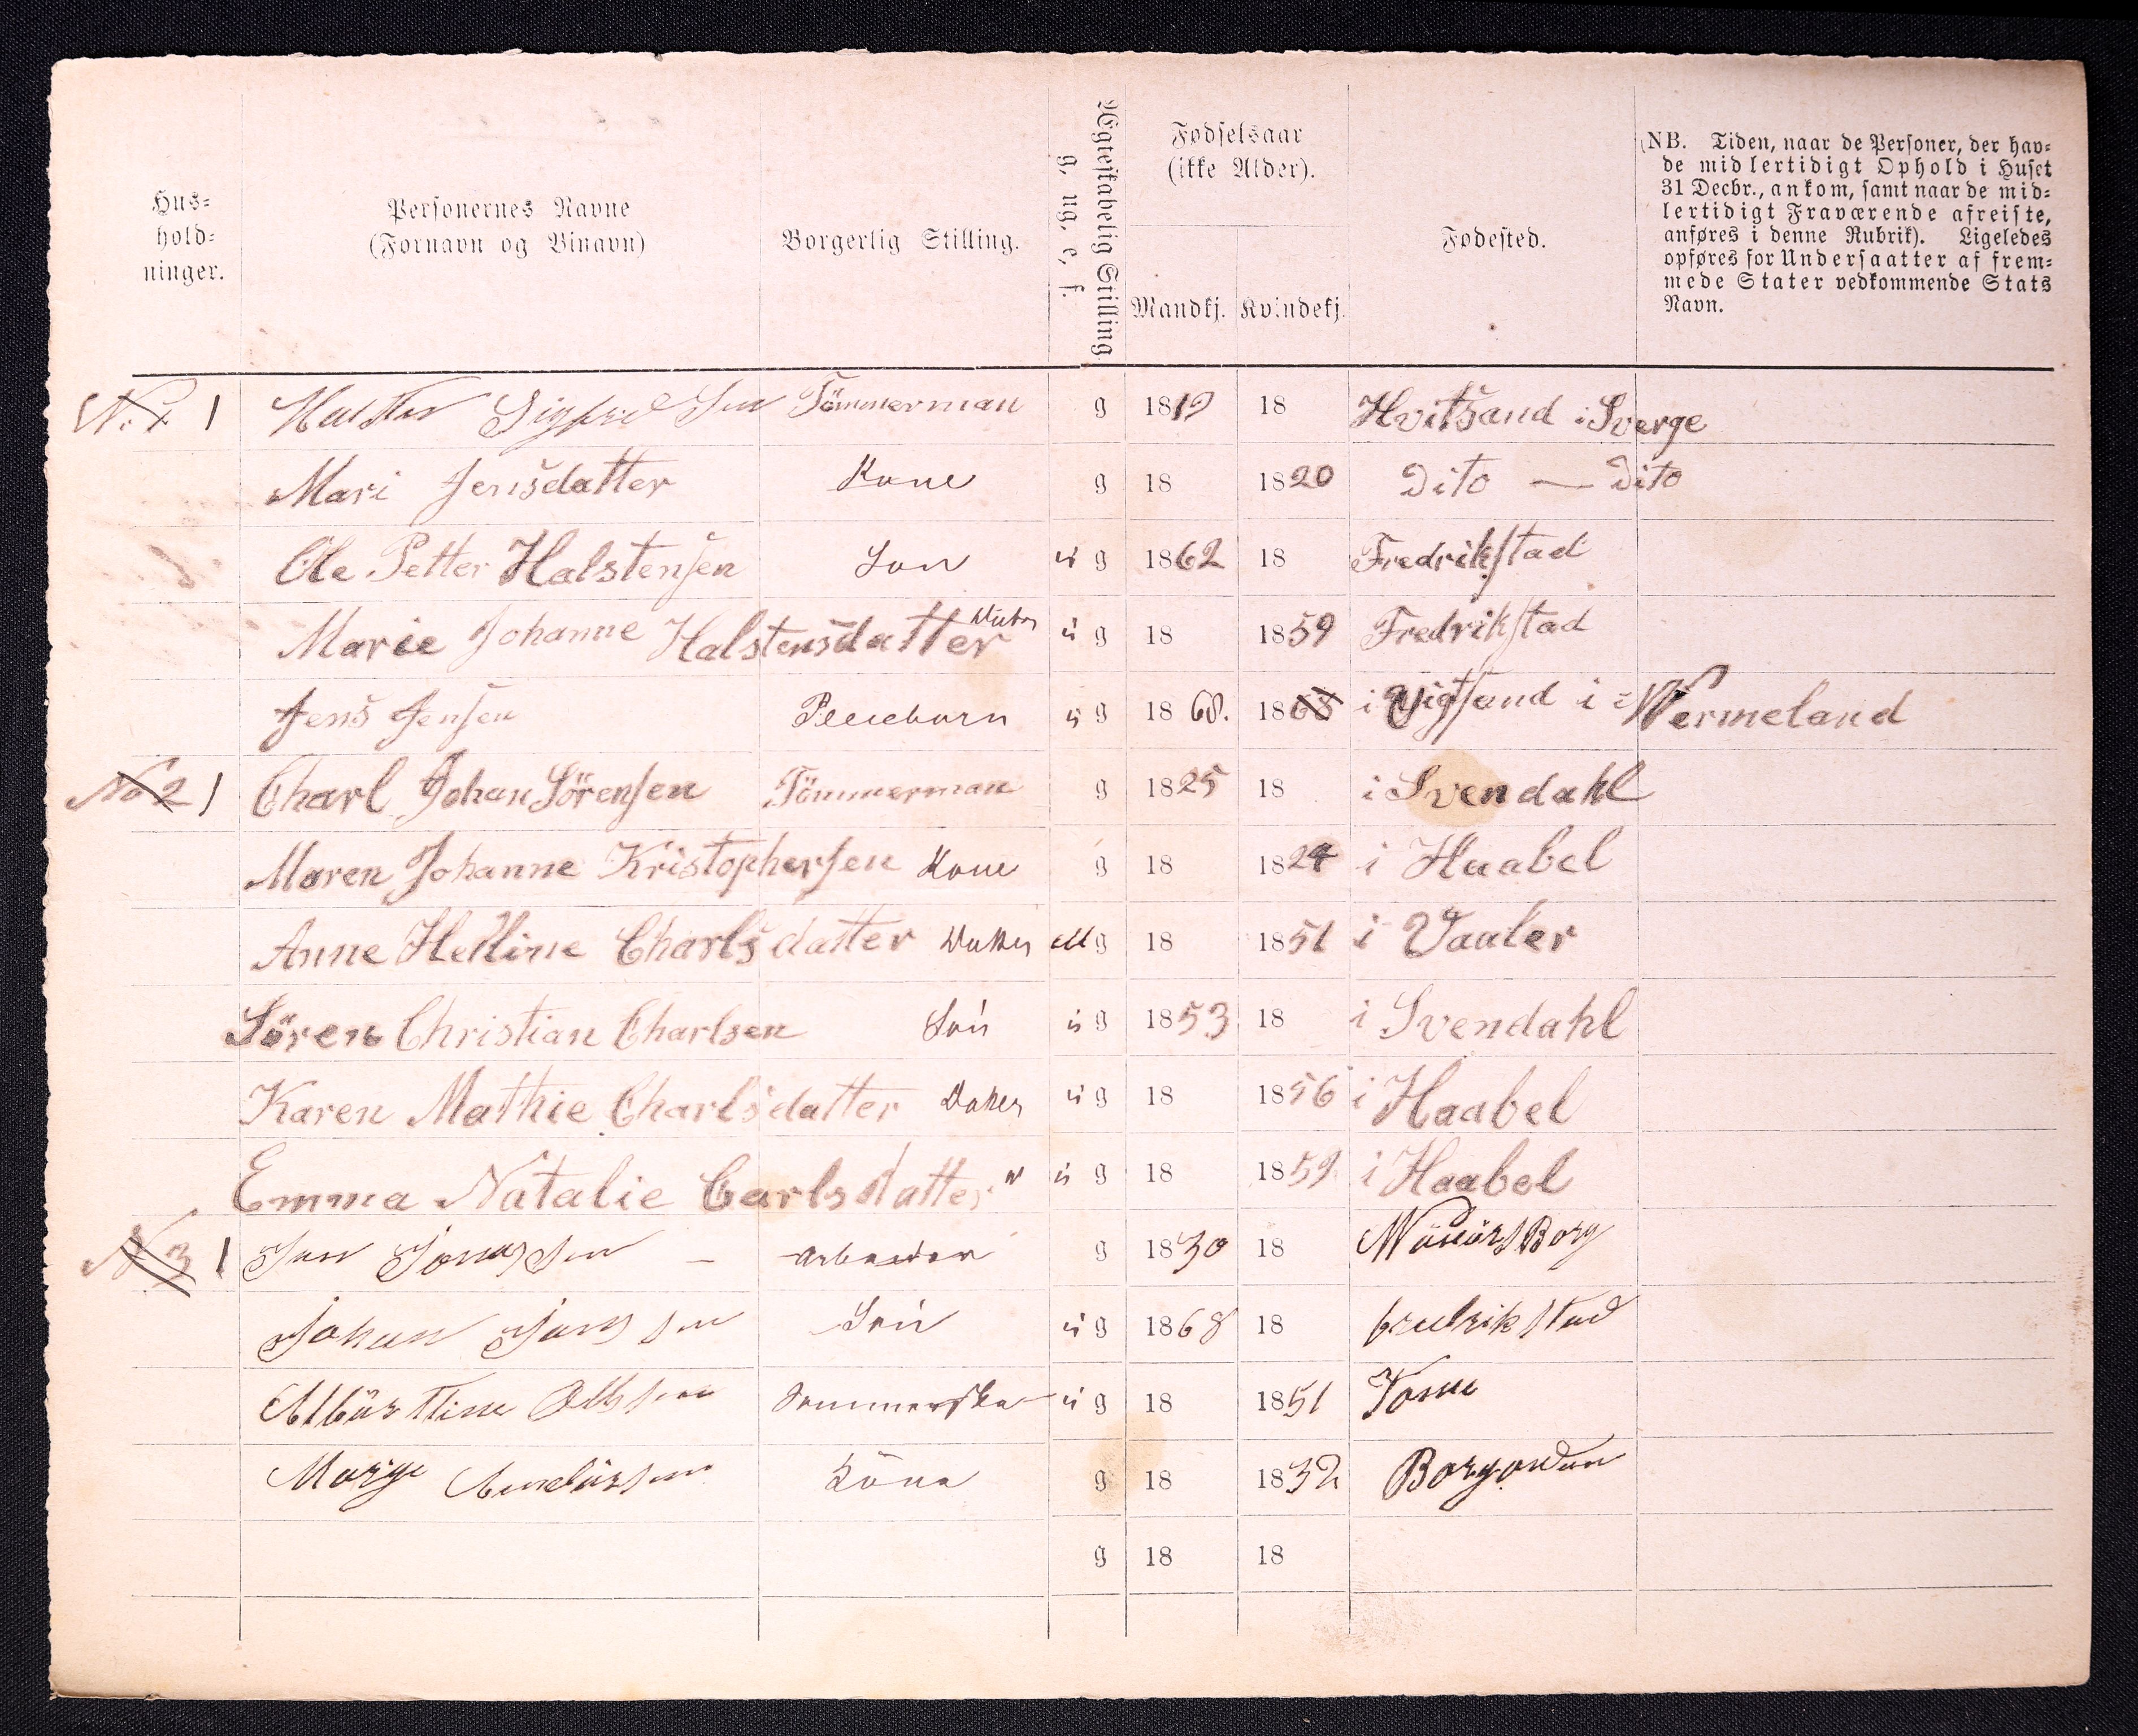 Hus-
hold-
ninger.
Personernes Navne
(Fornavn og Binavn)
Borgerlig Stilling.
Ægteskabelig Stilling
g, ug, e, f.
Fødselsaar
(ikke Alder).
Mandkj. Kvindekj.
Fødested.
(NB. Tiden, naar de Personer, der hav-
de midlertidigt Ophold i Huset
31 Decbr., ankom, samt naar de mid-
lertidigt Fraværende afreiste,
anføres i denne Rubrik). Ligeledes
opføres for Undersaatter af frem-
mede Stater vedkommende Stats
Navn.
1 Sigfred Sen Tömmerman g 1819 18 Hvitsand i Sverge
Mari Jensdatter Kone g 18 1820 Dito — Dito
Ole Petter Halstensen Son u g 1862 18 Fredrikstad
Marie Johanne Halstensdatter u g 18 1859 Fredrikstad
Jens Jensen Pleiebarn u g 1868. 1868 i Vigtsand i Wermeland
No 2 1 Charl Johan Sörensen Tömmerman g 1825 18 i Svendahl
Maren Johanne Kristophersen Kone g 18 1824 i Haabel
Anne Helline Charlsdatter Datter u g 18 1851 i Vaaler
Sören Christian Charlsen Søn u g 1853 18 i Svendahl
Karen Mathie Charlsdatter Datter u g 18 1856 i Haabel
Emma Natalie Carlsdatter " u g 18 1859 i Haabel
N 3 1 Jan Jonassen — Arbeider g 1830 18
Johan Jansen Søn u g 1868 18 fredrikstad
u g 18 1851
Köna g 18 1832
g 18 18